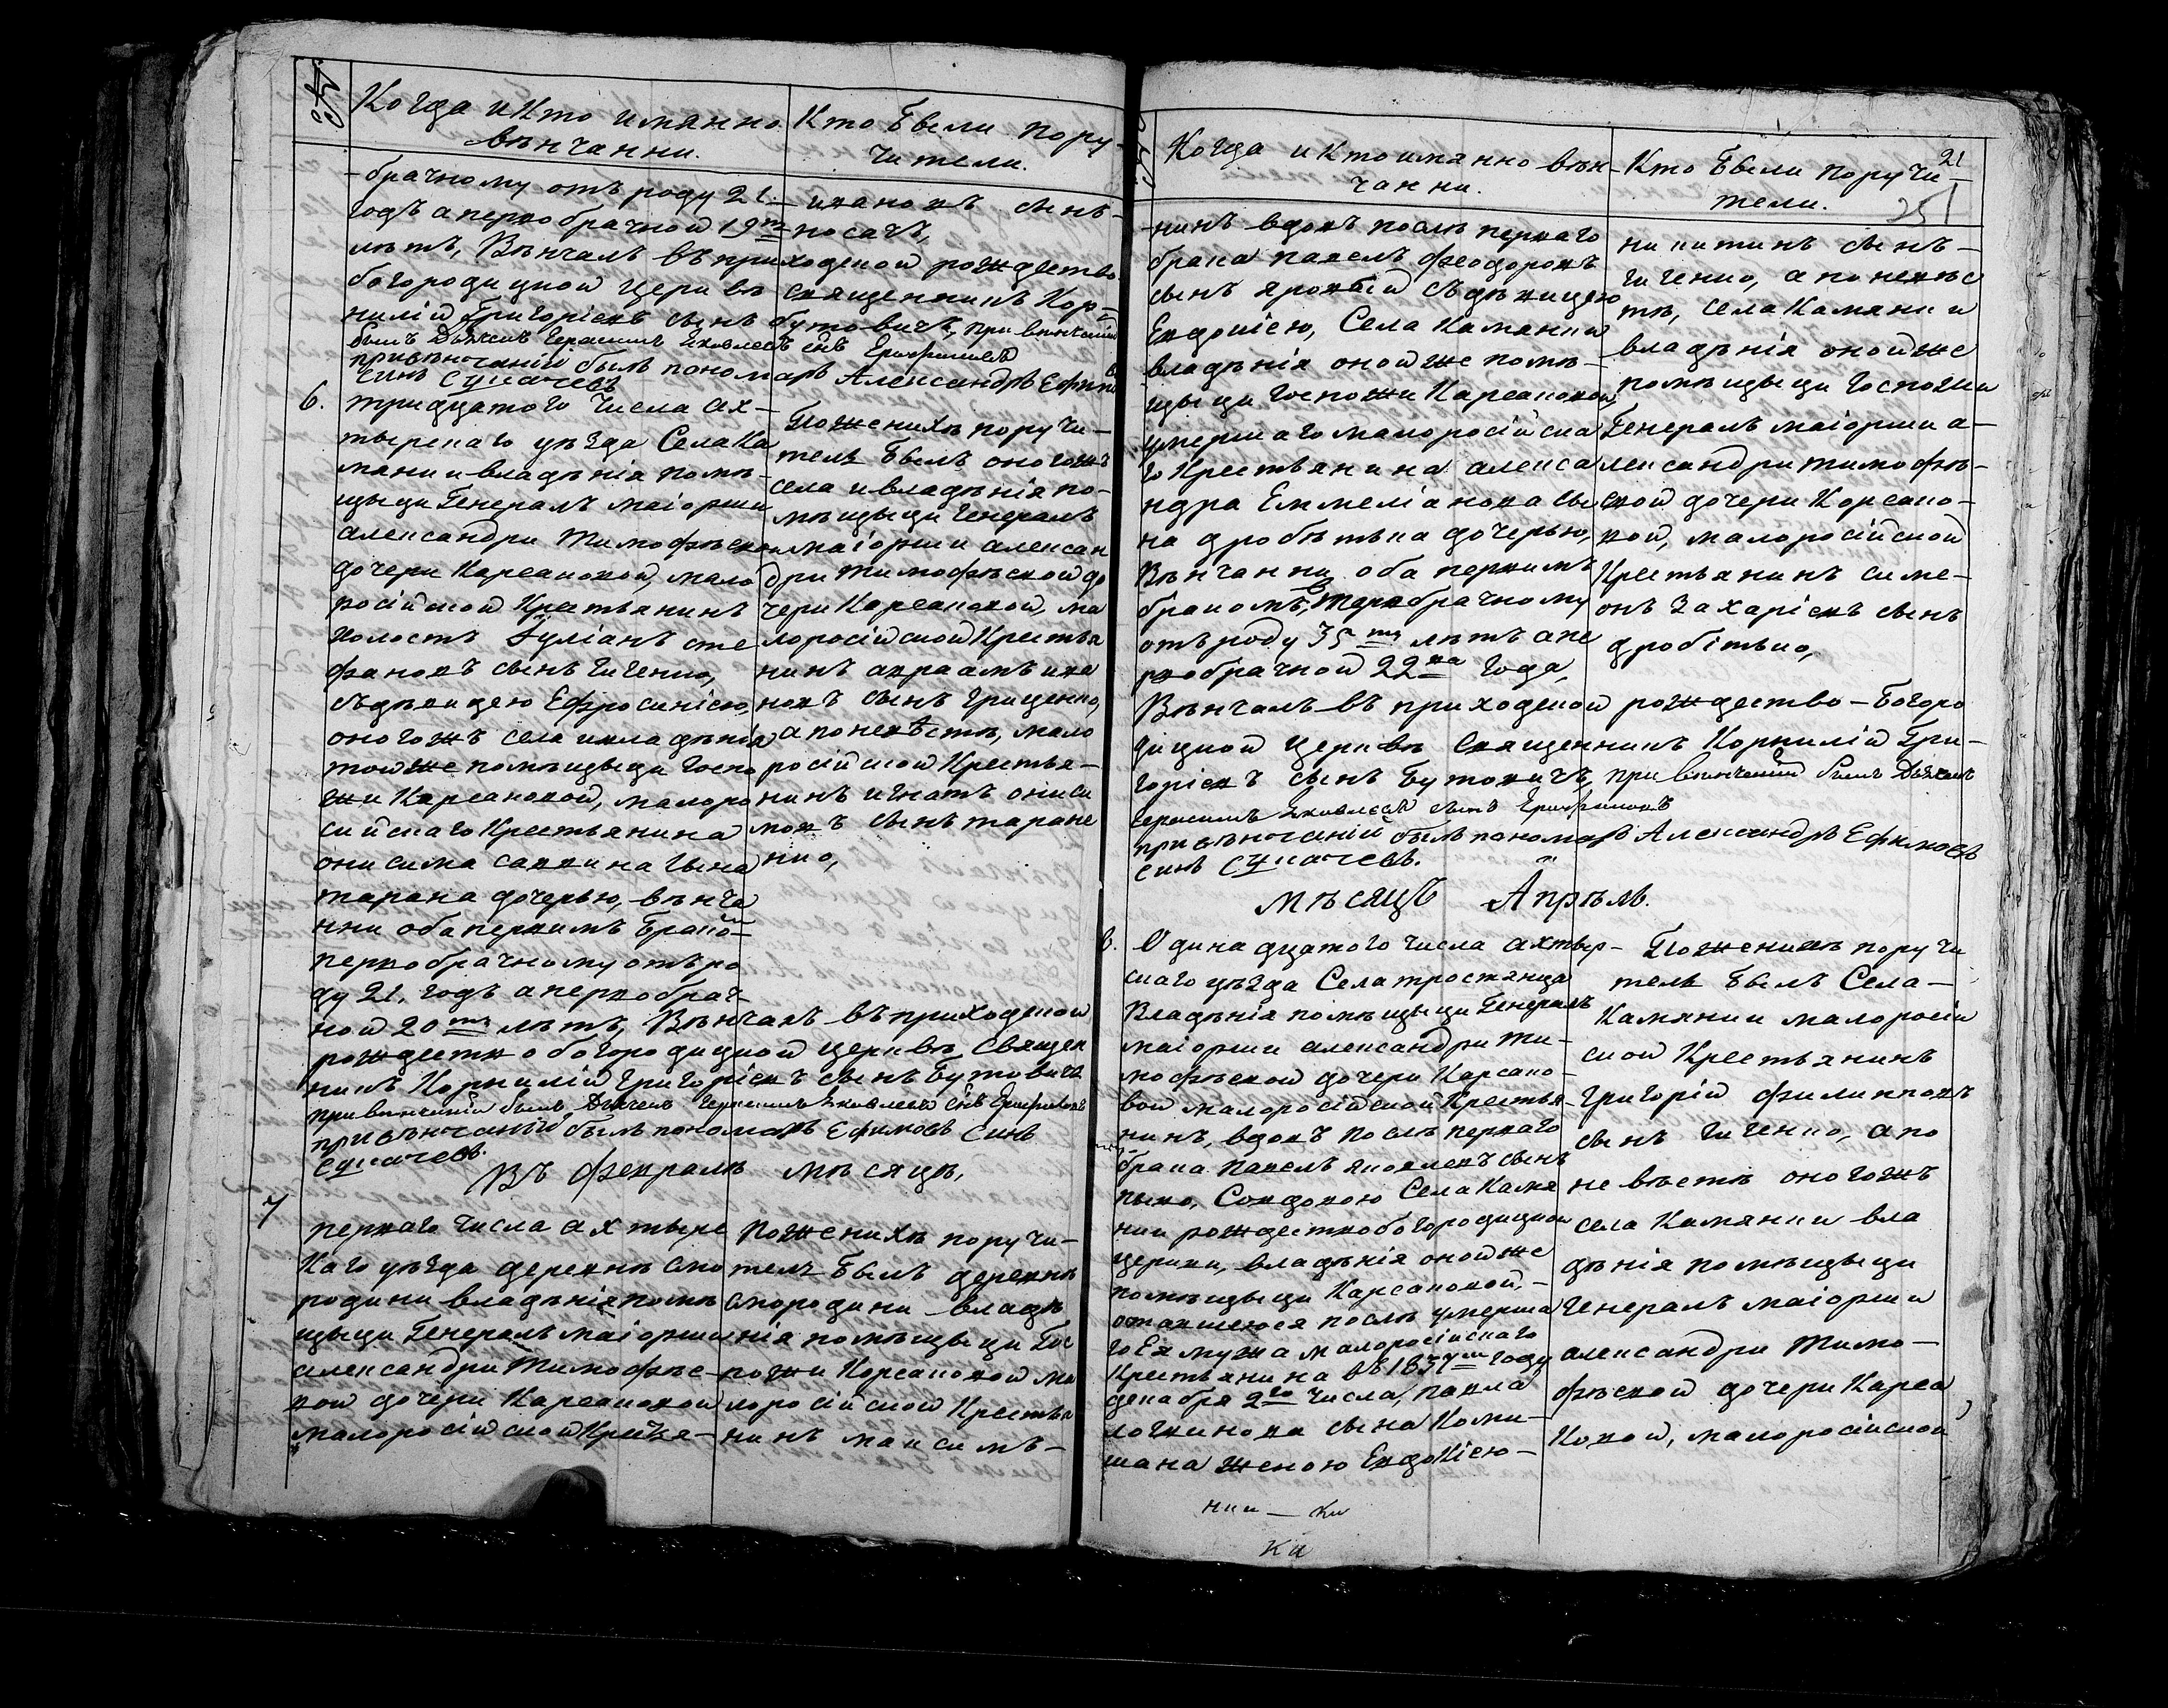 №
Когда и Кто имянно
вѣнчанни.
Кто были пору-
чители.
-брачному отъ роду 21.
годъ а первобрачной 19ть
лѣтъ, Вѣнчалъ въ приходской рождество
богородицкой церквѣ священникъ Кор-
нилій Григоріевъ сынъ бутовичъ, при вѣнчаніи
былъ Дьячекъ Герасимъ Яковлевъ снъ
при вѣнчаніи былъ пономарь Александръ Ефи
синъ Сукачевъ
ивановъ сынъ-
носачъ,
6.
тридцатого числа ах-
тырскаго уѣзда Села Ка
мянки владѣнія помѣ-
щыци Генералъ маіорши
александри тимофѣевой
дочери Карсаковой, мало
російской Крестьянинъ
холостъ Іуліанъ сте
фановъ сынъ гиченко,
съдѣвицею Ефросиніею,
оногожъ села ивладѣнія
тойже помѣщыци госпо
жи Карсаковой, малоро
сийскаго Крестьянина
онисима саввина сына
тарана дочерью, вѣнча
нни оба первимъ бракомъ
первобрачному отъ ро
ду 21. годъ а первобрач-
ной 20ть лѣтъ, Вѣнчалъ въ приходской
рождество богородицкой церквѣ Священ
никъ Корнилій григоріевъ сынъ бутовичъ
при вѣнчаніи былъ Дьячекъ Герасимъ Яковлевъ снъ
при вѣнчаніи былъ пономарь Ефимовъ синъ
Сукачевъ.
Поженихѣ поручи-
тель былъ оногожъ
села и владѣнія по-
мѣщыци генералъ
маіорши алексан
дри тимофѣевой до
чери Карсаковой, ма
лоросійской Крестья
нинъ авраамъ ива
новъ сынъ гриценко,
а поневѣстѣ, мало
російской Крестья-
нинъ игнатъ ониси
мовъ сынъ таране
нко,
Въ февралѣ мѣсяцѣ,
7
перваго числа ахтырс
каго уѣзда деревнѣ смо
родини владѣнія помѣ
щыци Генералъ маіорши
александри Тимофѣе-
вой дочери Карсаковой
малоросійской Крестья-
поженихѣ поручи-
тель былъ деревнѣ
смородини владѣ
нія помѣщыци Гос
пожи Корсаковой ма
лоросійской Крестья
нинъ максимъ-
Когда и Кто имянно вѣн-
чанни.
Кто были поручи-
тели.
21
251
-нинъ вдовъ послѣ перваго
брака павелъ феодоровъ
сынъ яровый съдѣвицею
Евдокіею, Села Камянки
владѣнія онойже помѣ-
щыци госпожи Карсаковой
умершаго малоросійска
го Крестьянина алекса
ндра Еммеліанова сы
на дробѣтька дочерью,
Вѣнчанни оба первимъ
бракомъ, первобрачному
отъ роду 35ть лѣтъ а пе
рвобрачной 22ва года,
Вѣнчалъ въ приходской рождество-богоро
дицкой церквѣ Священникъ Корнилій Гри-
горіевъ сынъ Бутовичъ, при вѣнчаніи былъ Дьячекъ
Герасимъ Яковлевъ сынъ
при вѣнчаніи былъ пономарь Александръ Ефимовъ
синъ Сукачевъ.
никитинъ сынъ-
гиченко, а поневѣс
тѣ, села Камянки
владѣнія онойже
помѣщыци госпожи
Генералъ маіорши а-
лександри тимофѣе-
вой дочери Корсако-
вой, малоросійской
Крестьянинъ симе-
онъ захаріевъ сынъ
дробітько,
мѣсяцъ Апрѣль.
8.
Одинадцатого числа ахтыр-
скаго уѣзда Села тростянца
Владѣнія помѣщыци Генералъ
маіорши александри ти-
мофѣевой дочери Карсако-
вой малоросійской Крестья-
нинъ, вдовъ послѣ перваго
брака павелъ яковлевъ сынъ
пыхо, Совдовою Села Камя
нки рождествобогородицкой
церкви, владѣнія онойже
помѣщыци Карсаковой,-
оставшеюся послѣ умерша
го Ея мужа малоросійскаго
Крестьянина въ 1837мъ году
декабря 2го числа, павла
логвинова сына Коми-
шана женою Евдокіею-
Поженихѣ поручи
тель былъ Села-
Камянки малоросій
ской Крестьянинъ
григорій филипповъ
сынъ гиченко, а по
невѣстѣ оногожъ
села Камянки вла
дѣнія помѣщыци
генералъ маіорши
александри Тимо-
фѣевой дочери Карса
ковой, малоросійской
нки — ки
ки